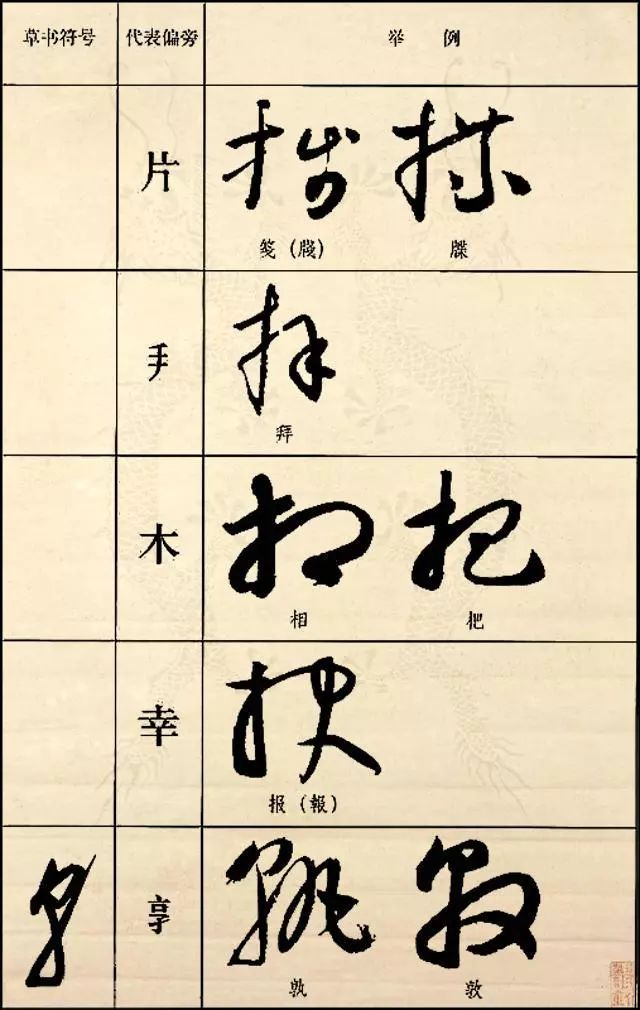 草书符号 代表偏旁 举例
片
笺（牋） 牒
手
拜
木
相 杷
幸
报（報）
享
孰 敦